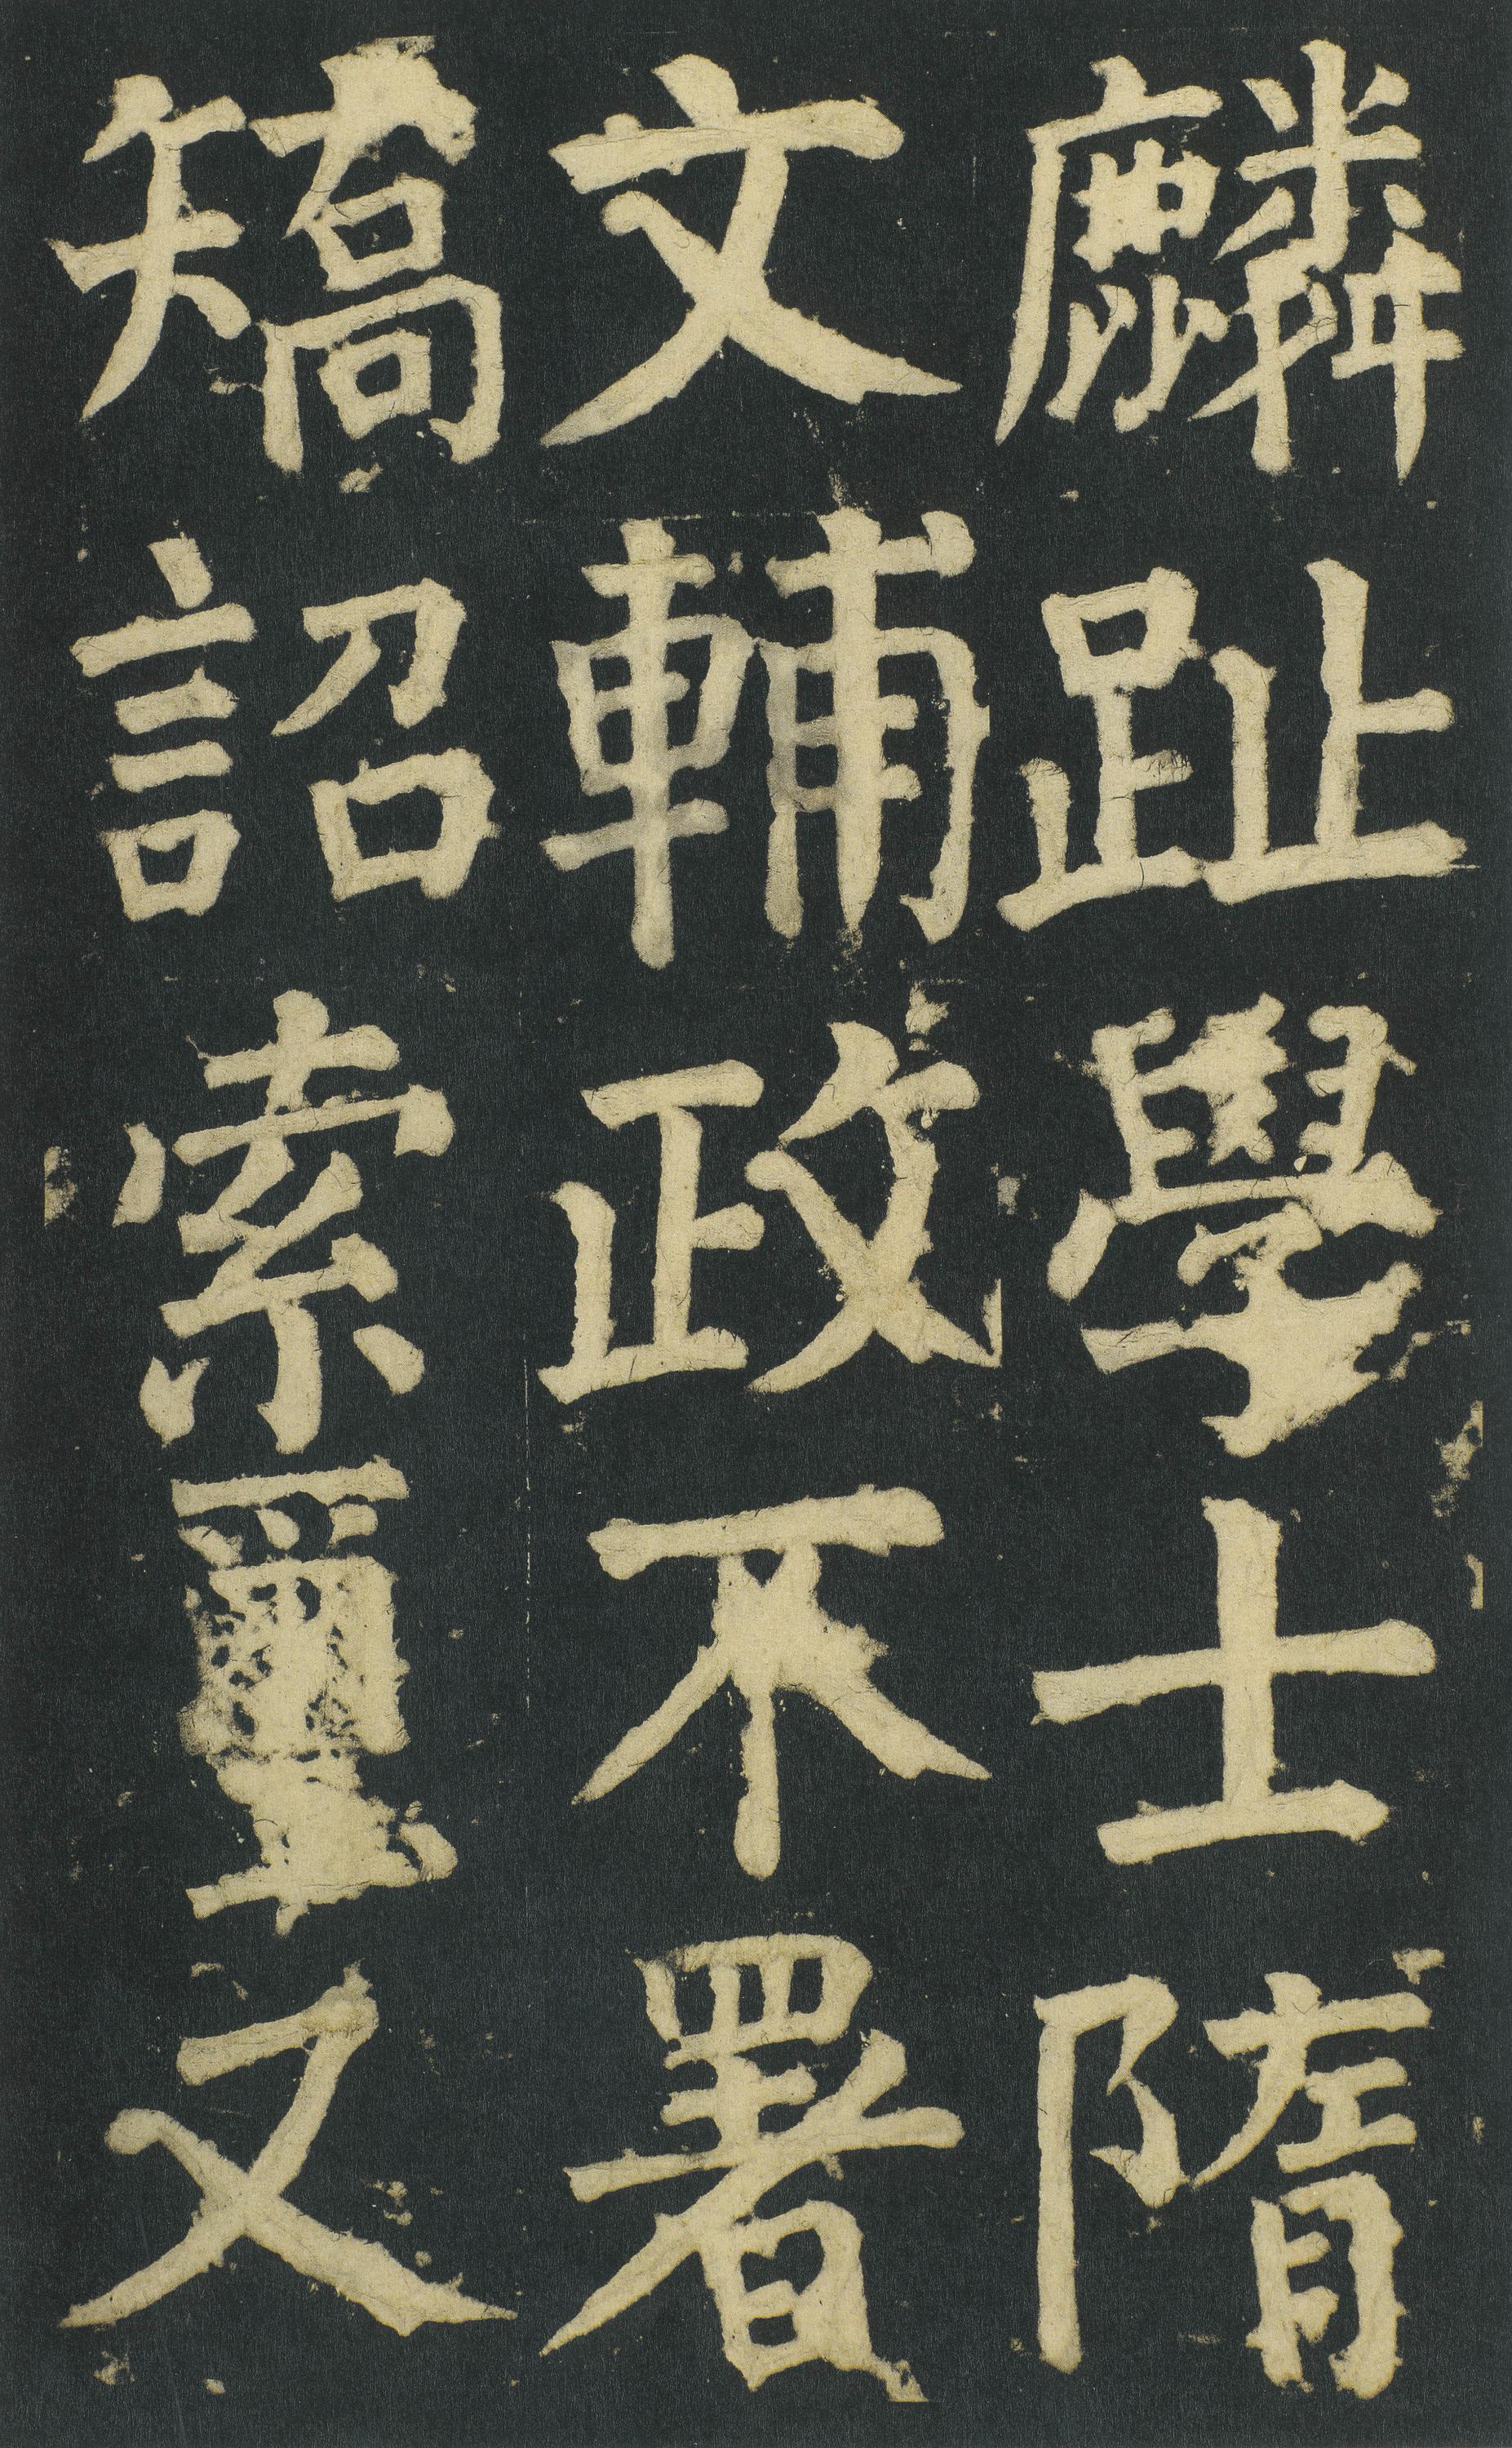 麟趾學士隋
文輔政不署
矯詔索璽又